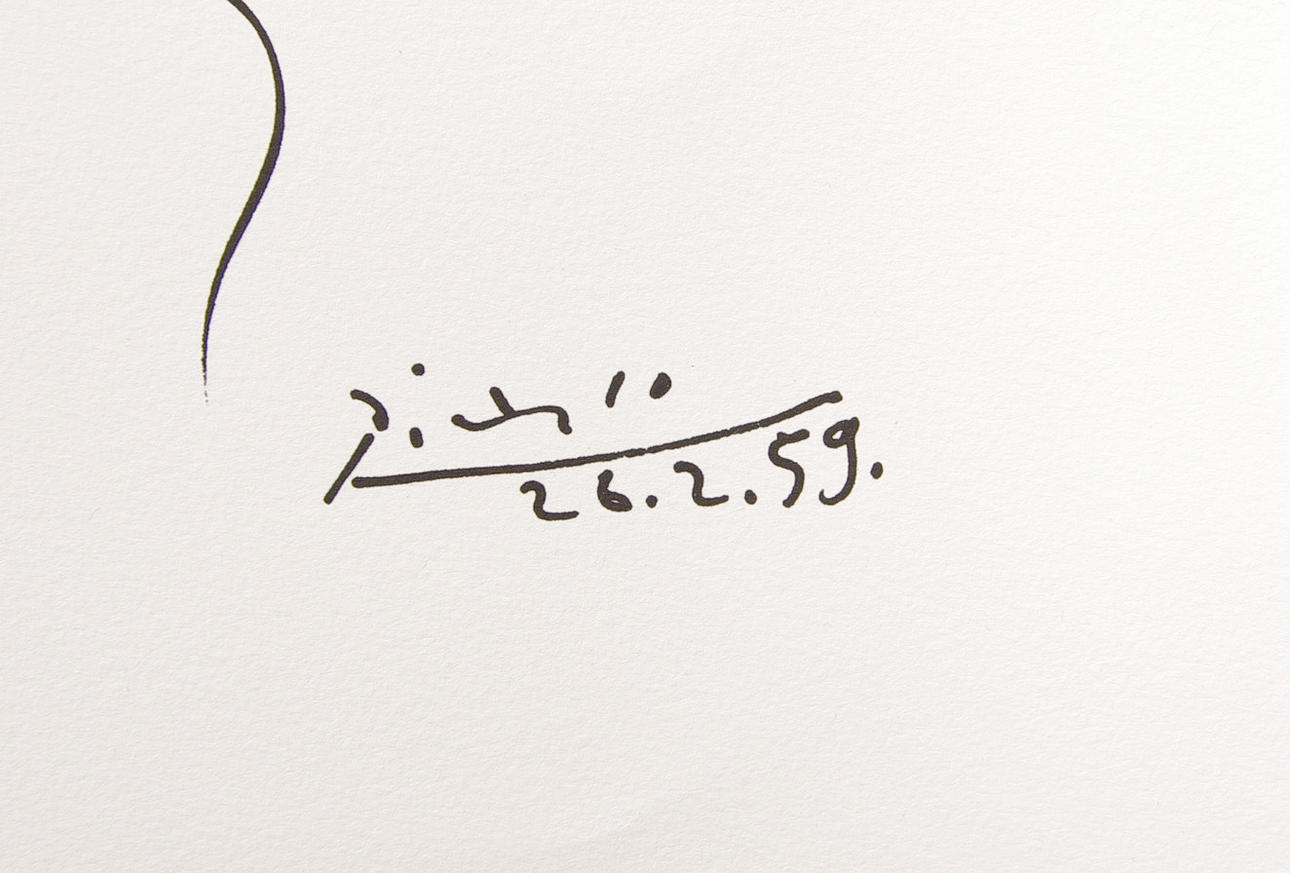 Picasso
26.2.59.